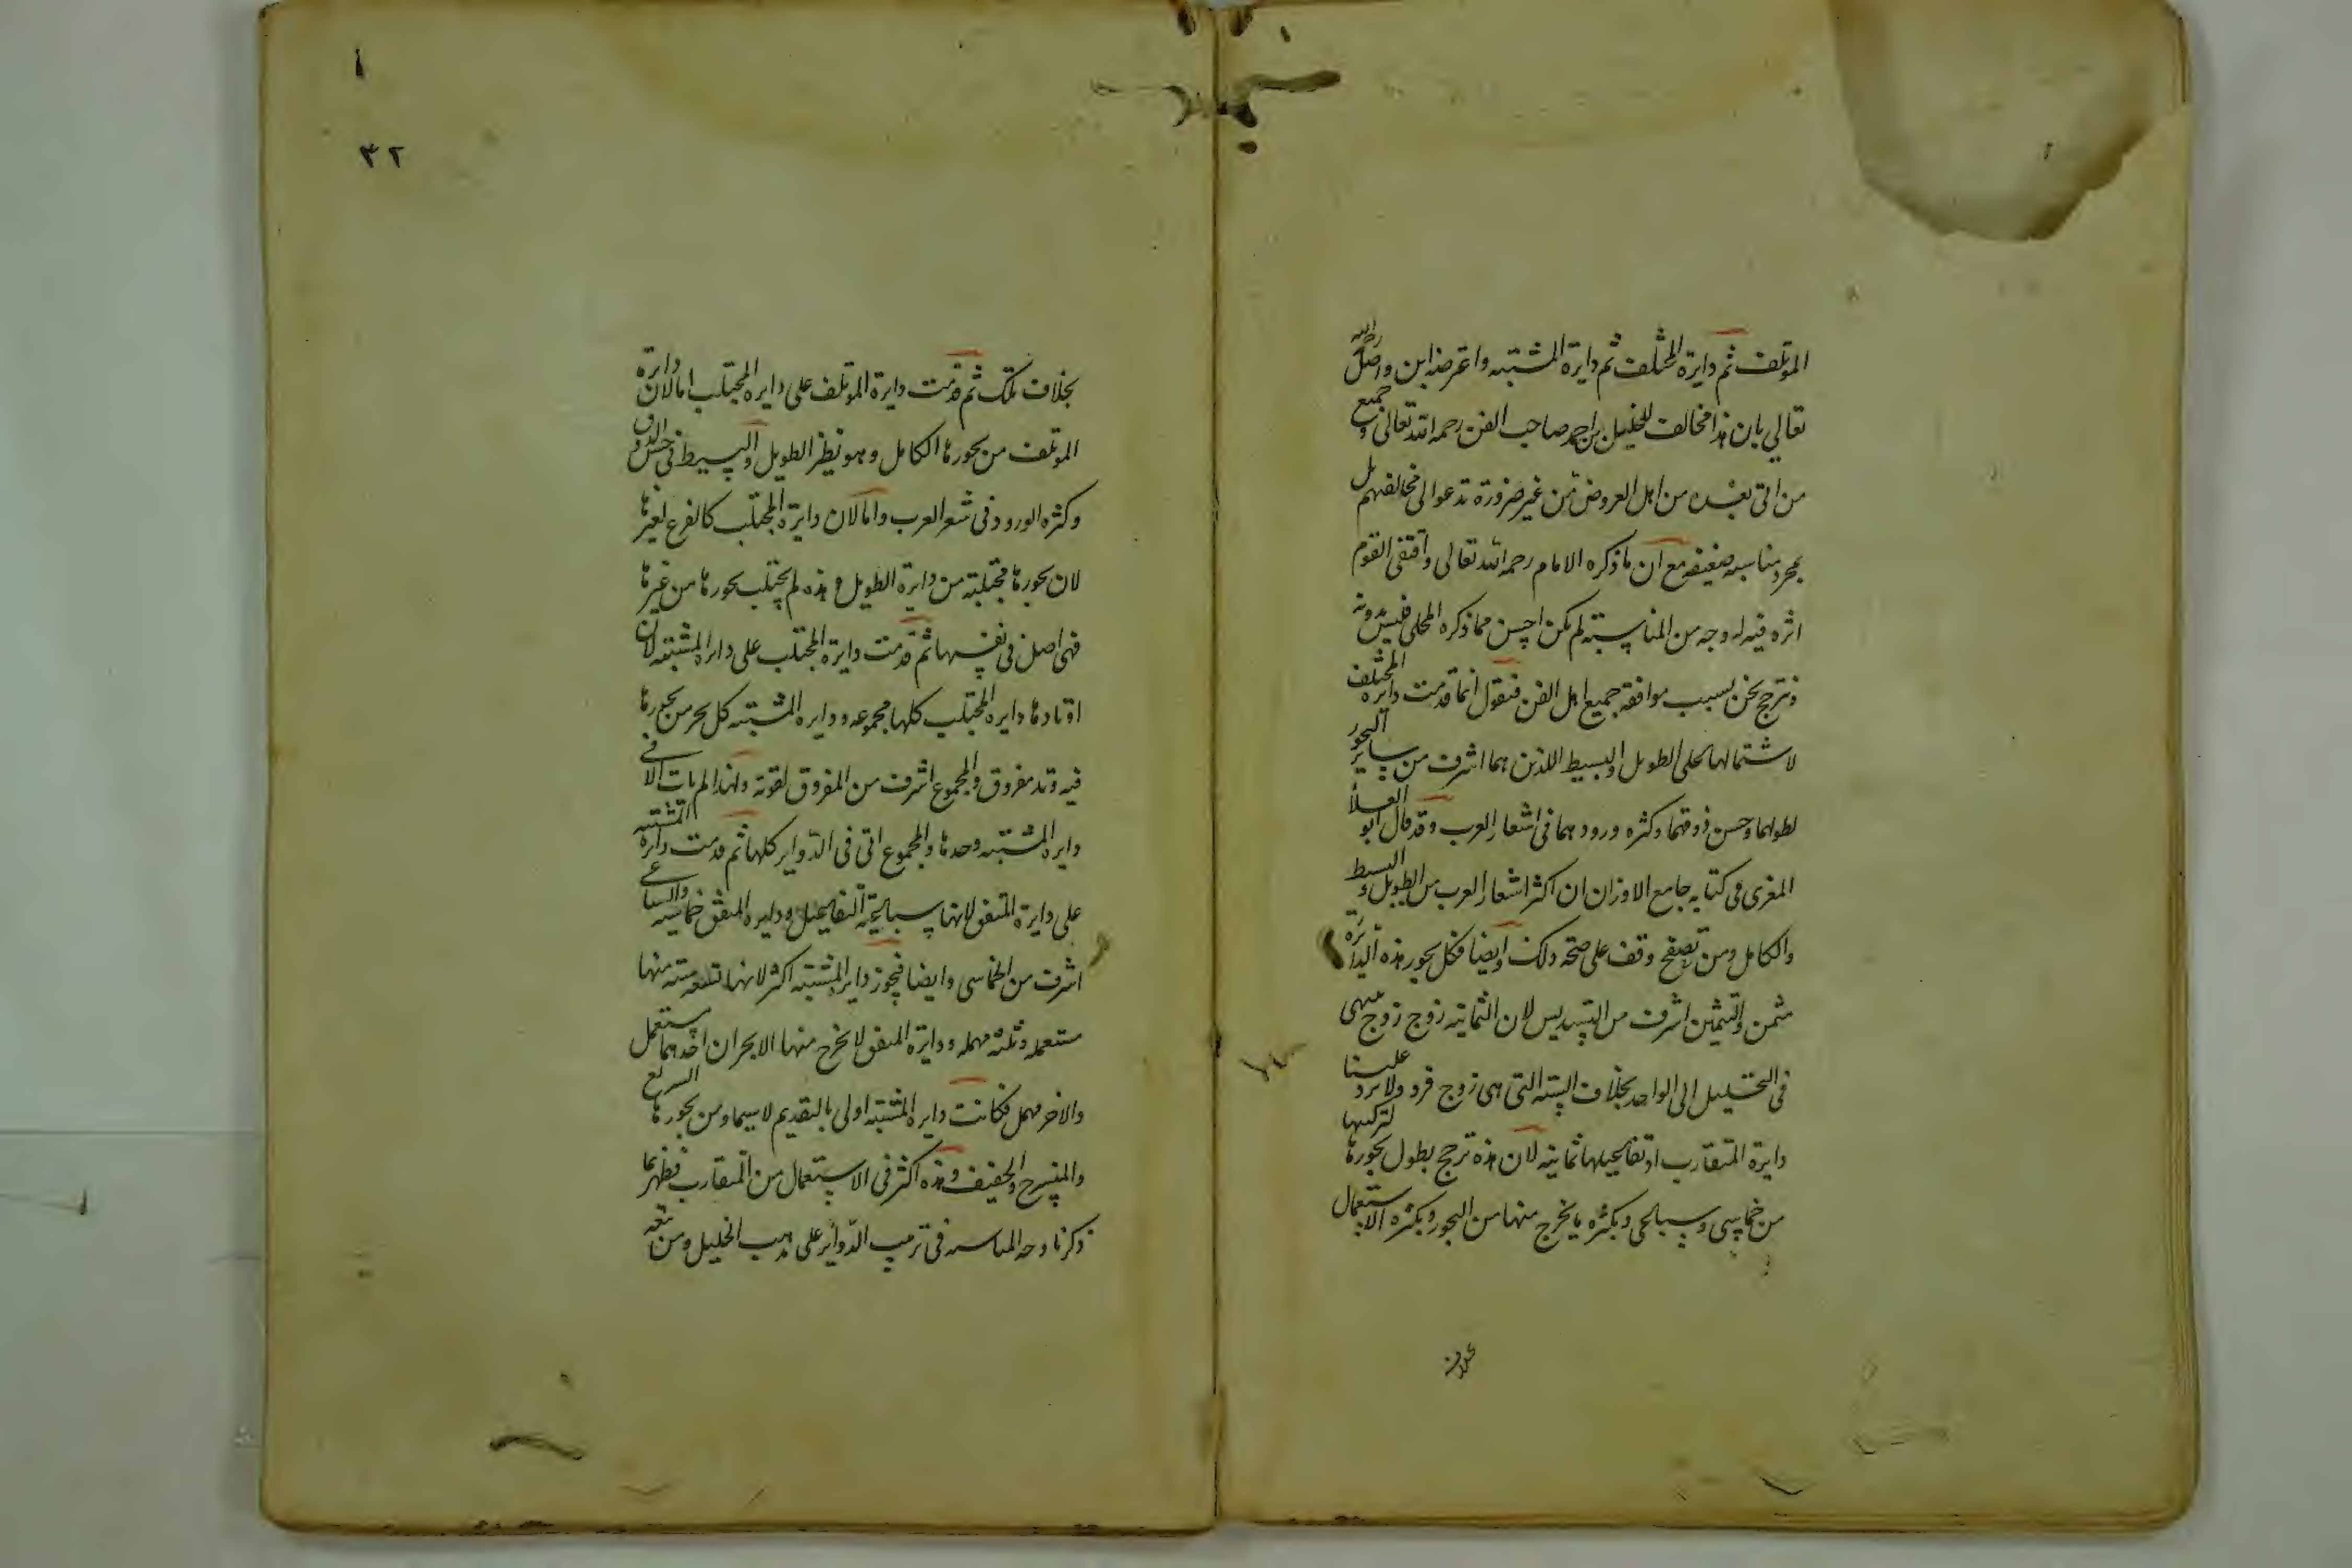 الموتلف ثم دايرة المختلف ثم دايرة المشتبه واعترضه ابن واصل رحمه الله
تعالي بان هذا مخالف للخليل بن احمد صاحب الفن رحمه الله تعالى و جميع
من اتى بعده من اهل العروض من غير ضرورة تدعوا لى مخالفتهم بل
بمجرد مناسبة ضعيفة مع ان ما ذكره الامام رحمه الله تعالى واقتفى القوم
اثره فيه له وجه من المناسبة لم يكن احسن مما ذكره المحلى فليس دونه
و ترجح نحن بسبب موافقة جميع اهل الفن فنقول انما قدمت دايرة المختلف
لاشتمالها على الطويل والبسيط اللذين هما اشرف من ساير البحور
لطولهما وحسن ذوقهما وكثره ورودهما فى اشعار العرب وقد قال ابو العلا
المعرى فى كتابه جامع الاوزان ان اكثر اشعار العرب من الطويل و البسيط
والكامل ومن تصفح وقف على صحة ذلك وايضا فكل بحور هذه الدايرة
مثمن والتثمين اشرف من التسديس لان الثمانية زوج زوج ينتهى
فى التحليل الى الواحد بخلاف الستة التى هى زوج فرد ولا يرد علينا
دايرة المتقارب اذ تفاعيلها ثمانية لان هذه ترجح بطول بحورها لتركبها
من خماسى وسباعى وبكثره ما يخرج منها من البحور وبكثره الاستعمال
بخلاف
٤٢
بخلاف تلك ثم قدمت دايرة الموتلف على دايره المجتلب اما لان دايرة
الموتلف من بحورها الكامل وهو نظير الطويل والبسيط فى حسن الذوق
وكثره الورود فى شعر العرب واما لان دايرة المجتلب كالفرع لغيرها
لان بحورها مجتلبة من دايرة الطويل و هذه لم يجتلب بحورها من غيرها
فهى اصل فى نفسها ثم قدمت دايرة المجتلب على دايرة المشتبه لان
اوتادها دايره المجتلب كلها مجموعه و دايره المشتبه كل بحر من بحورها
فيه وتد مفروق والمجموع اشرف من المفروق لقوته ولهذا لم يات الا فى
دايره المشتبه وحدها والمجموع اتى فى الدواير كلها ثم قدمت دايرة المشتبه
على دايرة المتفق لانها سباعية التفاعيل ودايره المتفق خماسيه والسباعى
اشرف من الخماسى وايضا فبحور دايرة المشتبه اكثر لانها تسعة ستة منها
مستعمله وثلثه مهمله ودايرة المتفق لا يخرج منها الا بحران احدهما مستعمل
والاخر مهمل فكانت دايره المشتبه اولى بالتقديم لاسيما ومن بحورها السريع
والمنسرح والخفيف وهذه اكثر فى الاستعمال من المتقارب فظهر بما
ذكرنا وجه المناسبه فى ترتيب الدواير على مذهب الخليل ومن تبعه